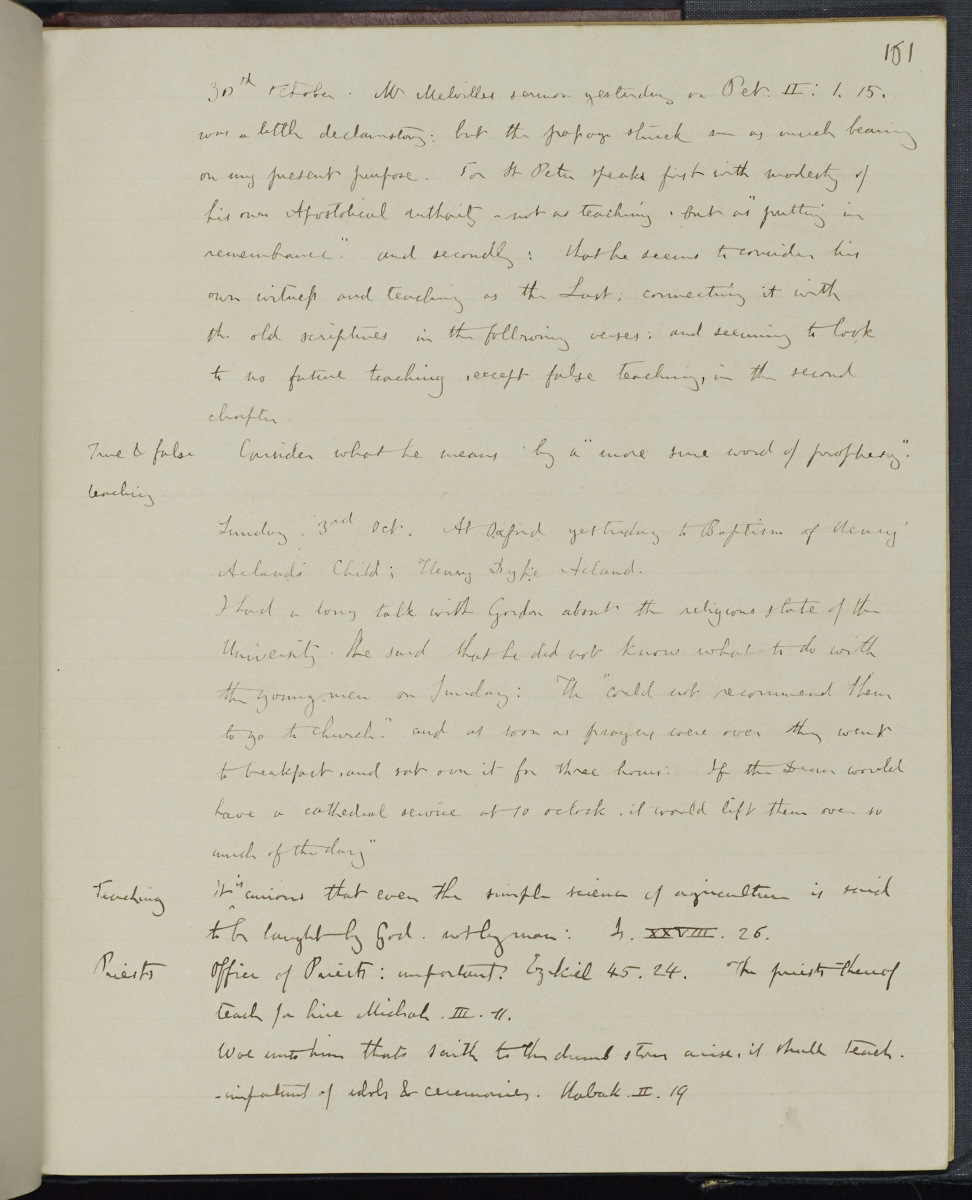 101
30th October. Mr Melvilles sermon yesterday on Pet. II: 1. 15.
was a little declamatory: but the passage struck me as much bearing
on my present purpose. For St Peter speaks first with modesty of
his own Apostolical authority - not as teaching. but as "putting in
remembrance". and secondly: that he seems to consider his
own witness and teaching as the Last; connecting it with
the old scriptures in the following verses: and seeming to look
to no future teaching, except false teaching, in the second
chapter
True & false
teaching
Consider what he means by a "more sure word of prophesy".
Sunday. 3rd Oct. At Oxford yesterday to Baptism of Henry
Aclands Child; Henry Dyke Acland.
I had a long talk with Gordon about the religious state of the
University. He said that he did not know what to do with
the young men on Sunday: He "could not recommend them
to go to church". and as soon as prayers were over they went
to breakfast, and sat over it for three hours: If the Dean would
have a cathedral service at 10 oclock. it would lift them over so
much of the day"
Teaching
It is curious that even the simple science of agriculture is said
to be taught by God. not by man: Is. XXVIII. 26.
Priests
Office of Priests: important? Ezekiel 45. 24. The priests thereof
teach for hire Michah. III. 11.
Woe unto him that saith to the dumb stone arise, it shall teach.
- important of idols & ceremonies. Habak. II. 19